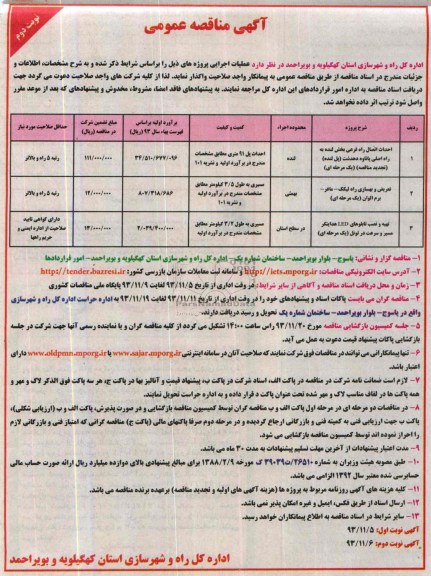 آگهی مناقصه عمومی
نوبت دوم
اداره کل راه و شهرسازی استان کهگیلویه و بویراحمد در نظر دارد عملیات اجرایی پروژه های ذیل را براساس شرایط ذکر شده و به شرح مشخصات، اطلاعات و
جزئیات مندرج در اسناد مناقصه از طریق مناقصه عمومی به پیمانکار واجد صلاحیت واگذار نماید. لذا از کلیه شرکت های واجد صلاحیت دعوت می گردد جهت
دریافت اسناد مناقصه به اداره امور قراردادهای این اداره کل مراجعه نمایند. به پیشنهادهای فاقد امضاء، مشروط، مخدوش و پیشنهادهای که بعد از موعد مقرر
واصل شود ترتیب اثر داده نخواهد شد.
ردیف | شرح پروژه | محدوده اجراء | کمیت و کیفیت | برآورد اولیه براساس فهرست بهاء سال ۹۳ (ریال) | مبلغ تضمین شرکت در مناقصه (ریال) | حداقل صلاحیت مورد نیاز
۱ | احداث اتصال راه فرعی بخش لنده به راه اصلی پاتاوه دهدشت (پل لنده) (تجدید مناقصه) (یک مرحله ای) | لنده | احداث پل ۹۱ متری مطابق مشخصات مندرج در برآورد اولیه و نشریه ۱۰۱ | ۳۴/۵۱۰/۶۷۷/۰۹۶ | ۱۱۱/۰۰۰/۰۰۰ | رتبه ۵ راه و بالاتر
۲ | تعریض و بهسازی راه لیکک- ماغر- برم الوان (یک مرحله ای) | بهمئی | مسیری به طول ۳/۵ کیلومتر مطابق مشخصات مندرج در برآورد اولیه و نشریه ۱۰۱ | ۸۰۷/۳۱۸/۶۸۶ | ۱۲/۰۰۰/۰۰۰ | رتبه ۵ راه و بالاتر
۳ | تهیه و نصب تابلوهای LED هدایتگر مسیر و سرعت در تونل (یک مرحله ای) | در سطح استان | مسیری به طول ۲/۳ کیلومتر مطابق مشخصات مندرج در برآورد اولیه | ۲/۰۳۹/۴۰۰/۰۰۰ | ۱۳/۰۰۰/۰۰۰ | دارای گواهی تایید صلاحیت از اداره ایمنی و حریم راهها
۱- مناقصه گزار و نشانی: یاسوج- بلوار بویراحمد- ساختمان شماره یک- اداره کل راه و شهرسازی استان کهگیلویه و بویراحمد- امور قراردادها
۲- آدرس سایت الکترونیکی مناقصات: http://iets.mporg.ir و سامانه ثبت معاملات سازمان بازرسی کشور: http://tender.bazresi.ir
۳- زمان و محل دریافت اسناد مناقصه و آگاهی از سایر شرایط: در وقت اداری از تاریخ ۹۳/۱۱/۵ لغایت ۹۳/۱۱/۹ پایگاه ملی مناقصات کشوری
۴- مناقصه گران می بایست پاکات اسناد و پیشنهادهای خود را در وقت اداری از تاریخ ۹۳/۱۱/۱۱ لغایت ۹۳/۱۱/۱۹ به اداره حراست اداره کل راه و شهرسازی
واقع در یاسوج- بلوار بویراحمد- ساختمان شماره یک تحویل و رسید دریافت دارند.
۵- جلسه کمیسیون بازگشایی مناقصه مورخ ۹۳/۱۱/۲۰ راس ساعت ۱۴۰۰ تشکیل می گردد از کلیه مناقصه گران و یا نماینده رسمی آنها جهت شرکت در جلسه
بازگشایی پاکات پیشنهاد قیمت دعوت به عمل می آید.
۶- تنها پیمانکارانی می توانند در مناقصات فوق شرکت نمایند که صلاحیت آنان در سامانه اینترنتی www.sajar.mporg.ir یا www.oldpmn.mporg.ir دارای
اعتبار باشد.
۷- لازم است ضمانت نامه شرکت در مناقصه در پاکت الف، اسناد شرکت در پاکت ب، پیشنهاد قیمت و آنالیز بها در پاکت ج، هر سه پاکت فوق الذکر لاک و مهر و
همه پاکت ها در لفاف مناسب لاک و مهر شده تحت عنوان پاکت د قرار داده و به اداره حراست تحویل نمایند.
۸- در مناقصات دو مرحله ای در مرحله اول پاکت الف و ب مناقصه گران توسط کمیسیون مناقصه بازگشایی و در صورت پذیرش، پاکت الف و ب (ارزیابی شکلی)،
پاکت ب جهت ارزیابی فنی به کمیته فنی و بازرگانی ارجاع گردیده و در مرحله دوم صرفا پاکتهای مالی (پاکت ج) مناقصه گرانی که امتیاز فنی و بازرگانی لازم
را احراز نموده اند توسط کمیسیون مناقصه بازگشایی می شود.
۹- مدت اعتبار پیشنهادات از آخرین مهلت تسلیم پیشنهادات به مدت ۳۰ ماه می باشد.
۱۰- طبق مصوبه هیئت وزیران به شماره ۲۶۵۱۰/ت۳۹۰۳۹ ک مورخه ۱۳۸۸/۲/۹ برای مبالغ پیشنهادی بالای دوازده میلیارد ریال ارائه صورت حساب مالی
حسابرسی شده معتبر سال ۱۳۹۲ الزامی می باشد.
۱۱- کلیه هزینه های آگهی روزنامه مربوط به پروژه ها (هزینه آگهی های اولیه و تجدید مناقصه) برعهده برنده مناقصه می باشد.
۱۲- ارسال اسناد از طریق فکس، ایمیل و غیره امکان پذیر نمی باشد.
۱۳- سایر شرایط در اسناد مناقصه به اطلاع پیمانکاران خواهد رسید.
آگهی نوبت اول: ۹۳/۱۱/۵
آگهی نوبت دوم: ۹۳/۱۱/۶
اداره کل راه و شهرسازی استان کهگیلویه و بویراحمد